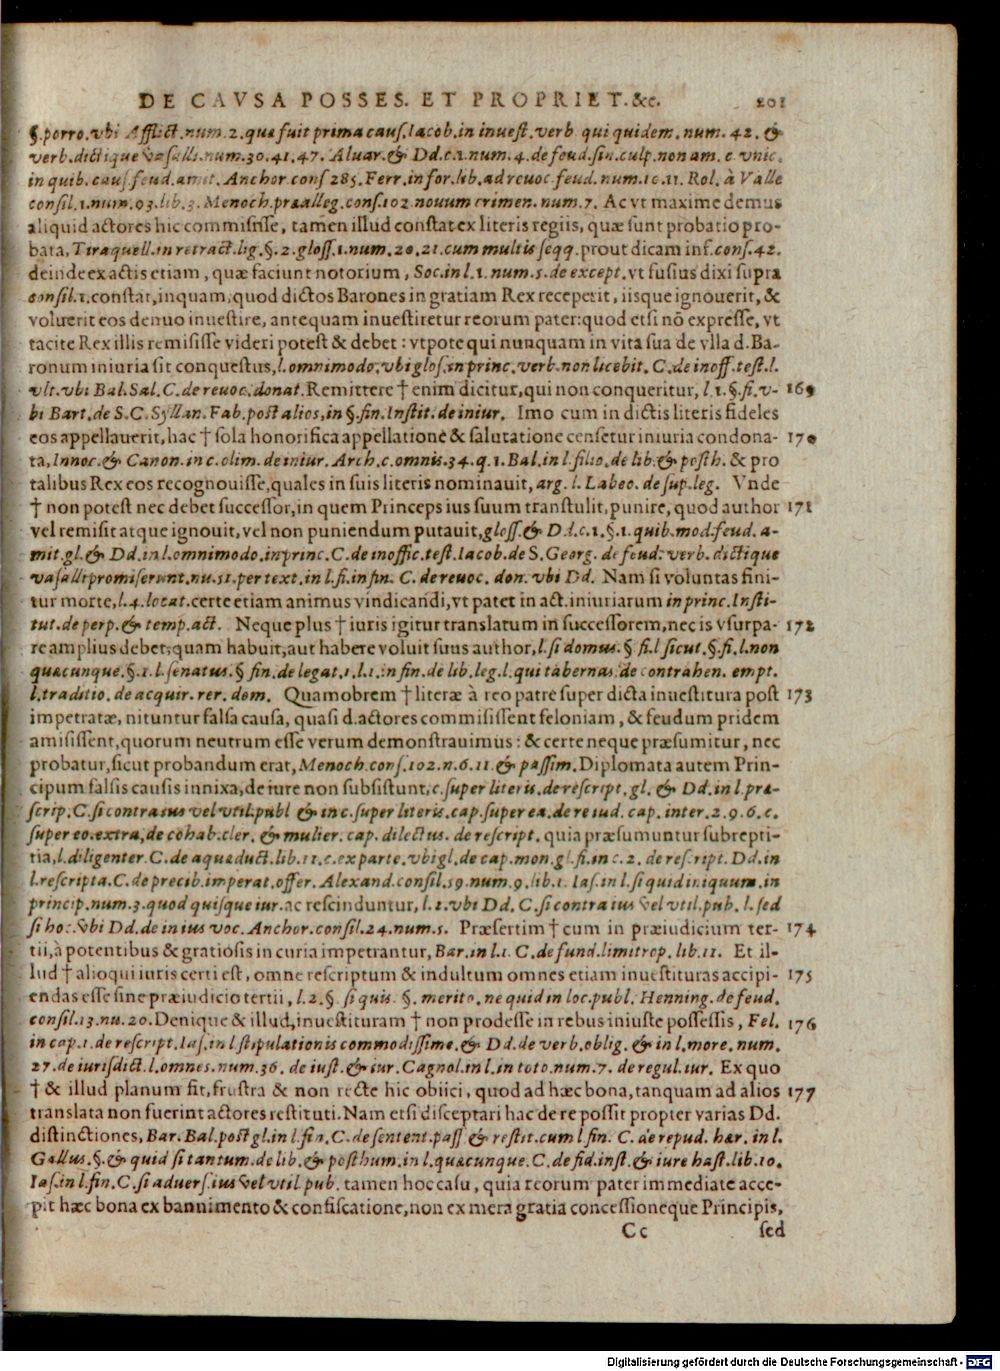 DE CAVSA POSSES. ET PROPRIET. &c. 201
§. porro. vbi Afflict. num. 2. quæ fuit prima caus. Iacob. in inuest. verb qui quidem. num. 42. &
verb. dictique vasalli. num. 30. 41. 47. Aluar. & Dd. c. 1. num. 4. de feud. sin. culp. non am. c vnic.
in quib. caus. feud. amit. Anchor. cons 285. Ferr. in for. lib. ad reuoc feud. num. 10. 11. Rol. à Valle
consil. 1. num. 93. lib. 3. Menoch. præalleg. cons. 102. nouum crimen. num. 7. Ac vt maxime demus
aliquid actores hic commisisse, tamen illud constat ex literis regiis, quæ sunt probatio pro-
bata, Tiraquell. in retract. lig. §. 2. gloss. 1. num. 20. 21. cum multis seqq. prout dicam inf. cons. 42.
deinde ex actis etiam, quæ faciunt notorium, Soc. in l. 1. num. 5. de except. vt fusius dixi supra
consil. 1. constat, inquam, quod dictos Barones in gratiam Rex receperit, iisque ignouerit, &
voluerit eos denuo inuestire, antequam inuestiretur reorum pater: quod etsi nõ expresse, vt
tacite Rex illis remisisse videri potest & debet: vtpote qui nunquam in vita sua de vlla d. Ba-
ronum iniuria sit conquestus, l. omnimodo. vbi glos. in princ. verb. non licebit. C. de inoff. test. l.
vlt. vbi Bal. Sal. C. de reuoc. donat. Remittere † enim dicitur, qui non conqueritur, l 1. §. fi. v- 169
bi Bart. de S. C. Syllan. Fab. post alios, in §. fin. Instit. de iniur. Imo cum in dictis literis fideles
eos appellauerit, hac † sola honorifica appellatione & salutatione censetur iniuria condona- 170
ta, Innoc. & Canon. in c. olim. de iniur. Arch. c. omnis. 34. q. 1. Bal. in l. filio. de lib. & posth. & pro
talibus Rex eos recognouisse, quales in suis literis nominauit, arg. l. Labeo. de sup. leg. Vnde
† non potest nec debet successor, in quem Princeps ius suum transtulit, punire, quod author 171
vel remisit atque ignouit, vel non puniendum putauit, gloss. & Dd. c. 1. §. 1. quib. mod. feud. a-
mit. gl. & Dd. in l. omnimodo. in princ. C. de inoffic. test. Iacob. de S. Georg. de feud. verb. dictique
vasalli promiserunt. nu. 51. per text. in l. fi. in fin. C. de reuoc. don. vbi Dd. Nam si voluntas fini-
tur morte, l. 4. locat. certe etiam animus vindicandi, vt patet in act. iniuriarum in princ. Insti-
tut. de perp. & temp. act. Neque plus † iuris igitur translatum in successorem, nec is vsurpa- 172
re amplius debet, quam habuit, aut habere voluit suus author, l. si domus. § fi. l sicut. §. fi. l. non
quæcunque. §. 1. l. senatus. § fin. de legat. 1. l. 1. in fin. de lib. leg. l. qui tabernas. de contrahen. empt.
l. traditio. de acquir. rer. dom. Quamobrem † literæ à reo patre super dicta inuestitura post 173
impetratæ, nituntur falsa causa, quasi d. actores commisissent feloniam, & feudum pridem
amisissent, quorum neutrum esse verum demonstrauimus: & certe neque præsumitur, nec
probatur, sicut probandum erat, Menoch. cons. 102. n. 6. 11. & passim. Diplomata autem Prin-
cipum falsis causis innixa, de iure non subsistunt, c. super literis. de rescript. gl. & Dd. in l. præ-
scrip. C. si contra ius vel vtil. publ & in c. super literis. cap. super ea. de re iud. cap. inter. 2. 9. 6. c.
super eo. extra, de cohab. cler. & mulier. cap. dilectus. de rescript. quia præsumuntur subrepti-
tia, l. diligenter C. de aquæduct. lib. 11. c. ex parte. vbi gl. de cap. mon. gl. fi. in c. 2. de rescript. Dd. in
l. rescripta. C. de precib. imperat. offer. Alexand. consil. 19. num. 9. lib. 1. Ias. in l. si quid iniquum. in
princip. num. 3. quod quisque iur. ac rescinduntur, l. 1. vbi Dd. C. si contra ius vel vtil. pub. l. sed
si hoc. vbi Dd. de in ius voc. Anchor. consil. 24. num. 5. Præsertim † cum in præiudicium ter- 174
tii, à potentibus & gratiosis in curia impetrantur, Bar. in l. 1. C. de fund. limitrop. lib. 11. Et il-
lud † alioqui iuris certi est, omne rescriptum & indultum omnes etiam inuestituras accipi- 175
endas esse sine præiudicio tertii, l. 2. §. si quis. §. merito. ne quid in loc. publ. Henning. de feud.
consil. 13. nu. 20. Denique & illud, inuestituram † non prodesse in rebus iniuste possessis, Fel. 176
in cap. 1. de rescript. Ias. in l. stipulationis commodissime. & Dd. de verb. oblig. & in l. more. num.
27. de iurisdict. l. omnes. num. 36. de iust. & iur. Cagnol. in l. in toto. num. 7. de regul. iur. Ex quo
† & illud planum fit, frustra & non recte hic obiici, quod ad hæc bona, tanquam ad alios 177
translata non fuerint actores restituti. Nam etsi disceptari hac de re possit propter varias Dd.
distinctiones, Bar. Bal. post gl. in l. fin. C. de sentent. pass & restit. cum l fin. C. de repud. hær. in l.
Gallus. §. & quid si tantum. de lib. & posthum. in l. quæcunque. C. de fid. inst. & iure hast. lib. 10.
Ias. in l. fin. C. si aduers. ius vel vtil pub. tamen hoc casu, quia reorum pater immediate acce-
pit hæc bona ex bannimento & confiscatione, non ex mera gratia concessioneque Principis,
Cc sed
Digitalisierung gefördert durch die Deutsche Forschungsgemeinschaft - DFG